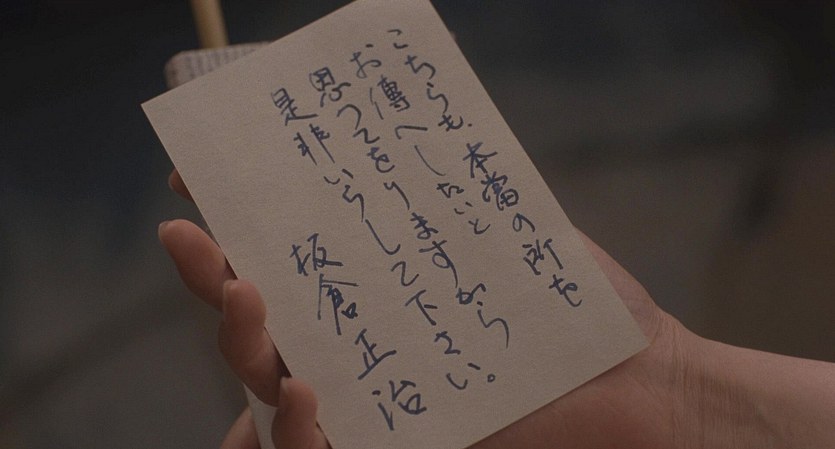 こちらも、本當の所を
お傳へしたいと
思つてをりますから
是非いらして下さい。
板倉正治